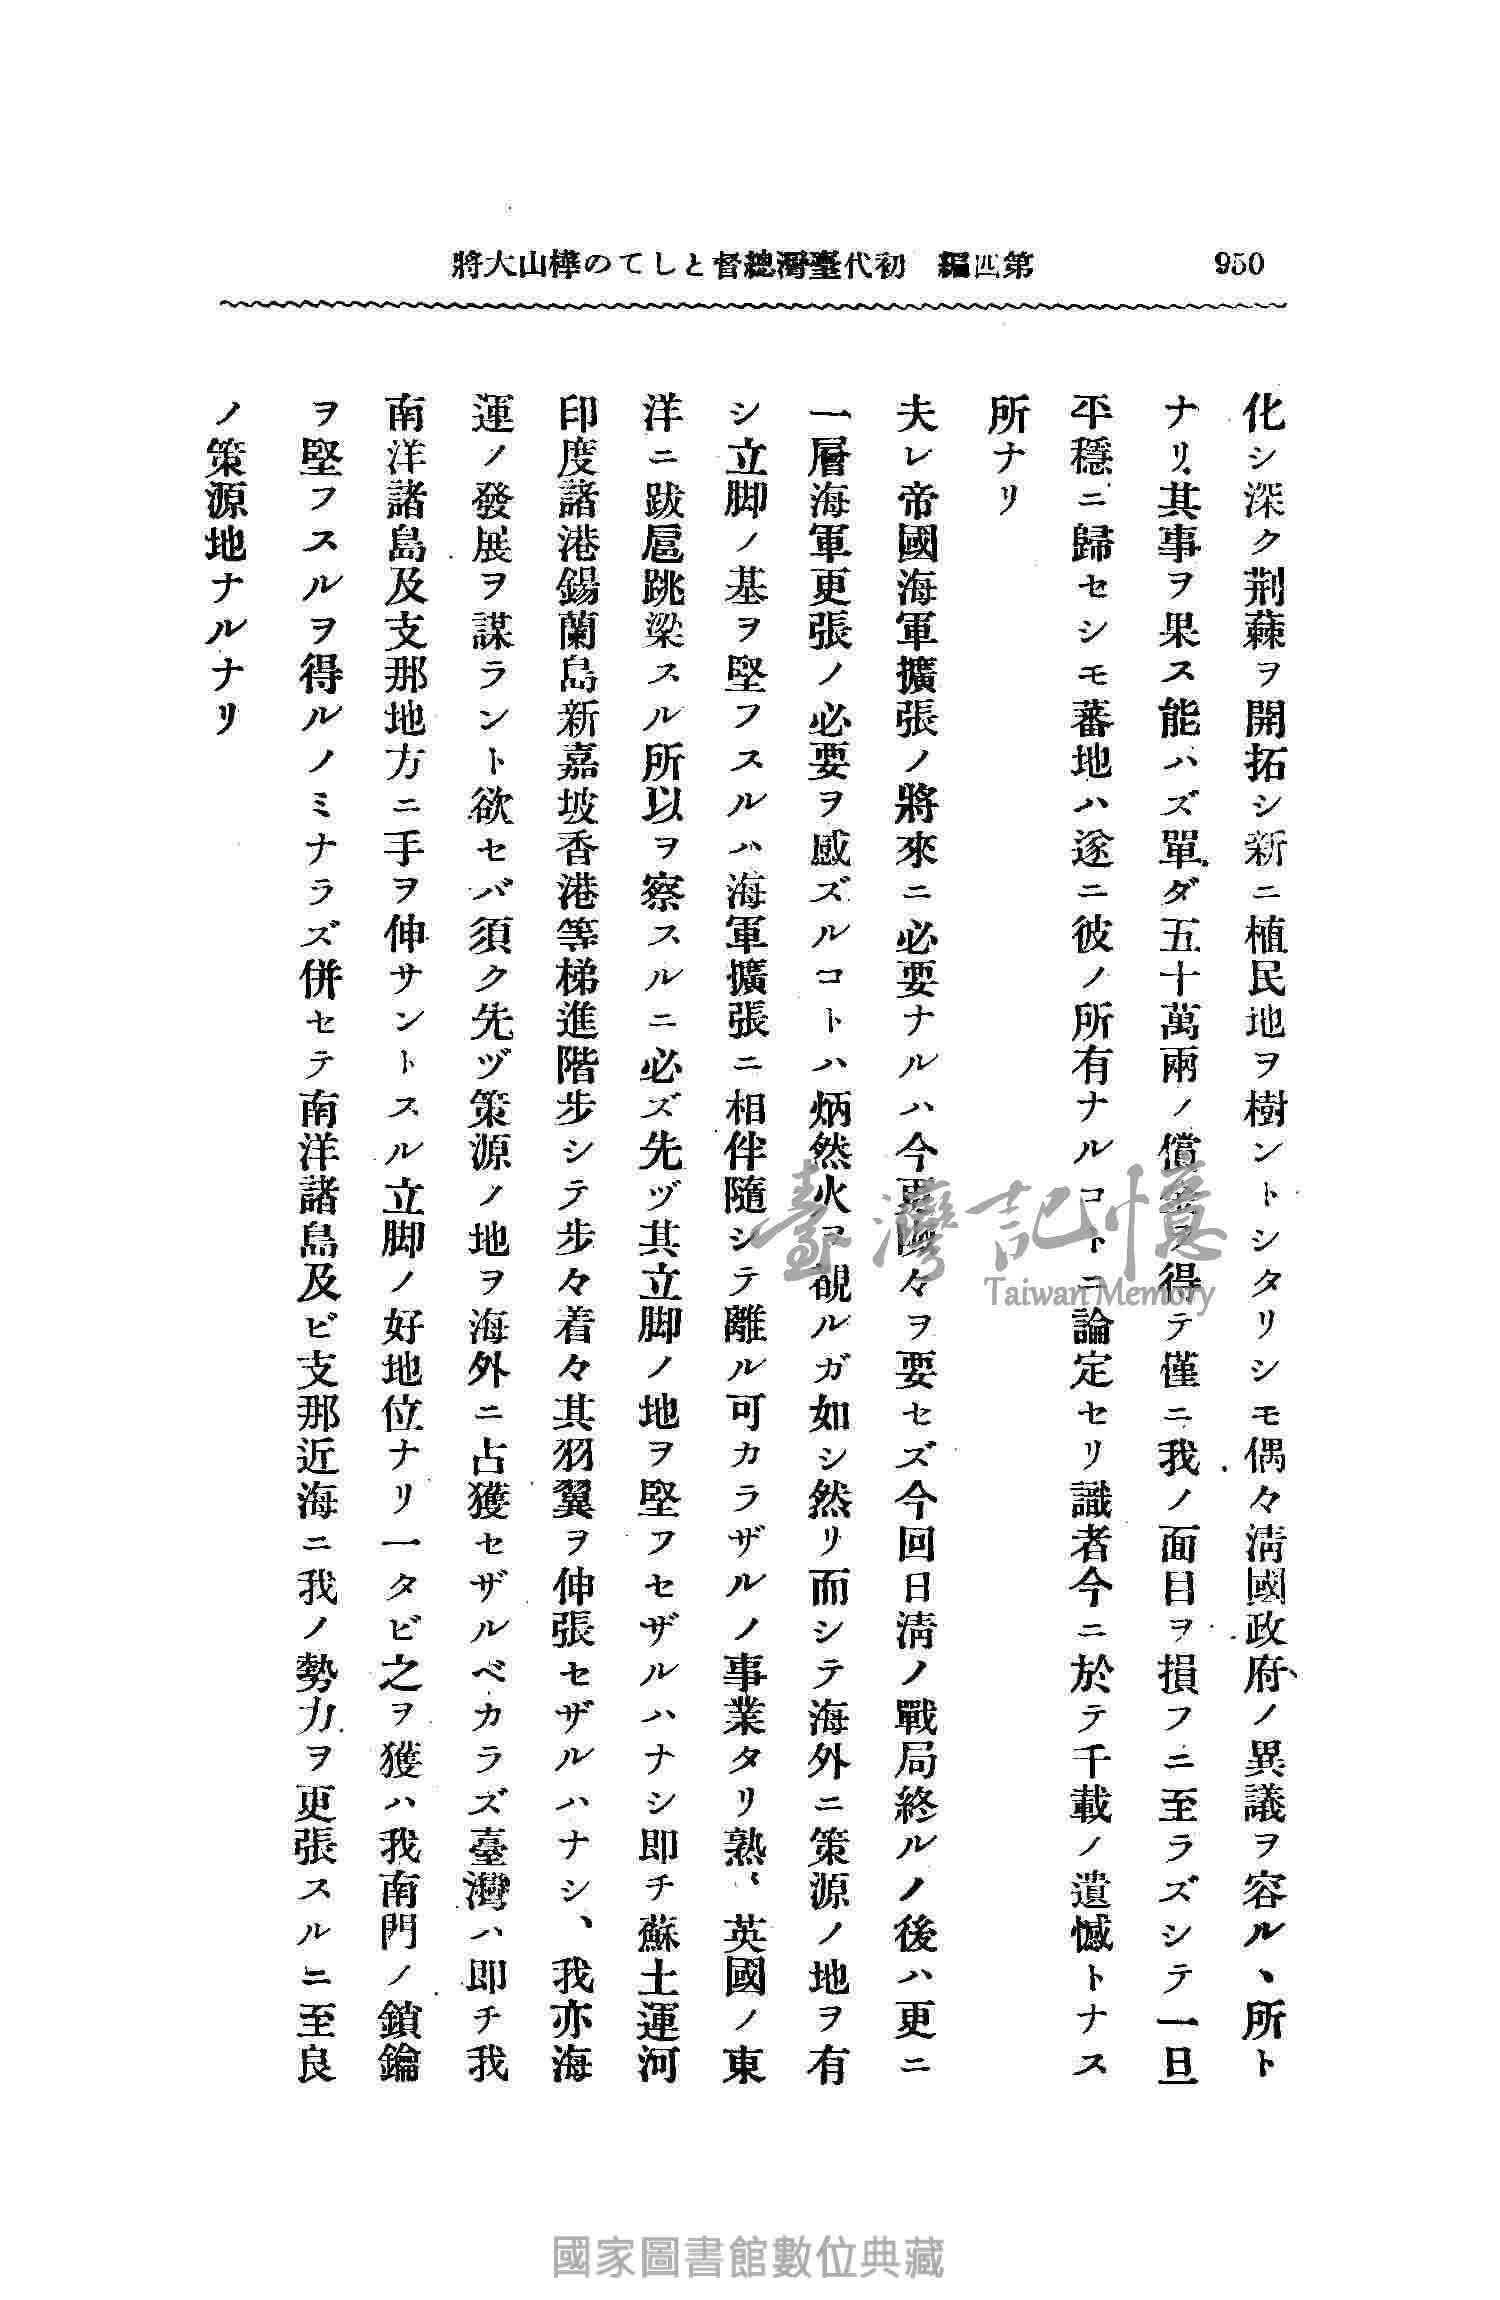 950
第四編 初代臺灣總督としての樺山大將
化シ深ク荆蕀ヲ開拓シ新ニ植民地ヲ樹ントシタリシモ偶々淸國政府ノ異議ヲ容ルヽ所ト
ナリ其事ヲ果ス能ハズ單ダ五十萬兩ノ償金ヲ得テ僅ニ我ノ面目ヲ損フニ至ラズシテ一旦
平穩ニ歸セシモ蕃地ハ遂ニ彼ノ所有ナルコトニ論定セリ識者今ニ於テ千載ノ遺憾トナス
所ナリ
夫レ帝國海軍擴張ノ將來ニ必要ナルハ今更喋々ヲ要セズ今回日淸ノ戰局終ルノ後ハ更ニ
一層海軍更張ノ必要ヲ感ズルコトハ炳然火ヲ覩ルガ如シ然リ而シテ海外ニ策源ノ地ヲ有
シ立脚ノ基ヲ堅フスルハ海軍擴張ニ相伴隨シテ離ル可カラザルノ事業タリ熟〻英國ノ東
洋ニ跋扈跳梁スル所以ヲ察スルニ必ズ先ヅ其立脚ノ地ヲ堅フセザルハナシ即チ蘇士運河
印度諸港錫蘭島新嘉坡香港等梯進階步シテ步々着々其羽翼ヲ伸張セザルハナシ、我亦海
運ノ發展ヲ謀ラント欲セバ須ク先ヅ策源ノ地ヲ海外ニ占獲セザルベカラズ臺灣ハ即チ我
南洋諸島及支那地方ニ手ヲ伸サントスル立脚ノ好地位ナリ一タビ之ヲ獲ハ我南門ノ鎖鑰
ヲ堅フスルヲ得ルノミナラズ併セテ南洋諸島及ビ支那近海ニ我ノ勢力ヲ更張スルニ至良
ノ策源地ナルナリ
臺灣記憶
Taiwan Memory
國家圖書館數位典藏